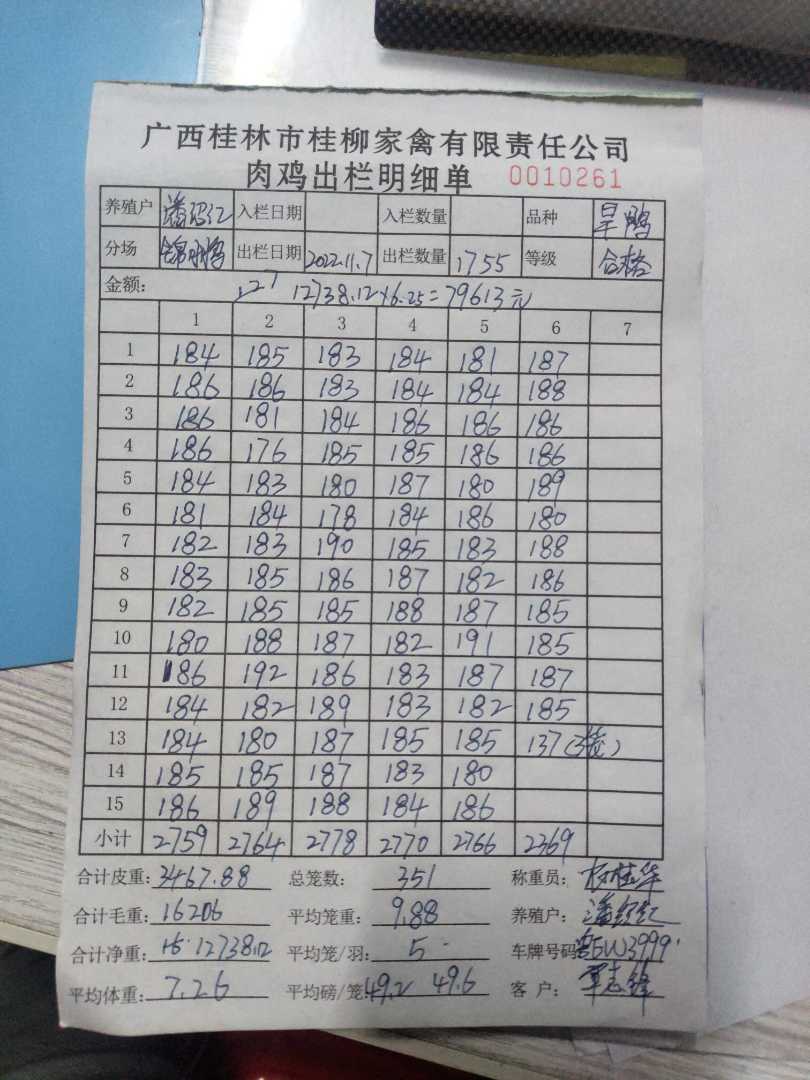 广西桂林市桂柳家禽有限责任公司
肉鸡出栏明细单 0010261
养殖户 入栏日期 入栏数量 品种 旱鸭
分场 出栏日期 2022.11.7 出栏数量 1755 等级 合格
金额: 12738.12×6.25=79613元
1 2 3 4 5 6 7
1 184 185 183 184 181 187
2 186 186 183 184 184 188
3 186 181 184 186 186 186
4 186 176 185 185 186 186
5 184 183 180 187 180 189
6 181 184 178 184 186 180
7 182 183 190 185 183 188
8 183 185 186 187 182 186
9 182 185 185 188 187 185
10 180 188 187 182 191 185
11 186 192 186 183 187 187
12 184 182 189 183 182 185
13 184 180 187 185 185 137(3笼)
14 185 185 187 183 180
15 186 189 188 184 186
小计 2759 2764 2778 2770 2766 2369
合计皮重: 3467.88 总笼数: 351 称重员:
合计毛重: 16206 平均笼重: 9.88 养殖户:
合计净重: 12738.12 平均笼/羽: 5 车牌号码
平均体重: 7.26 平均磅/笼 49.2 49.6 客 户: 覃志锋